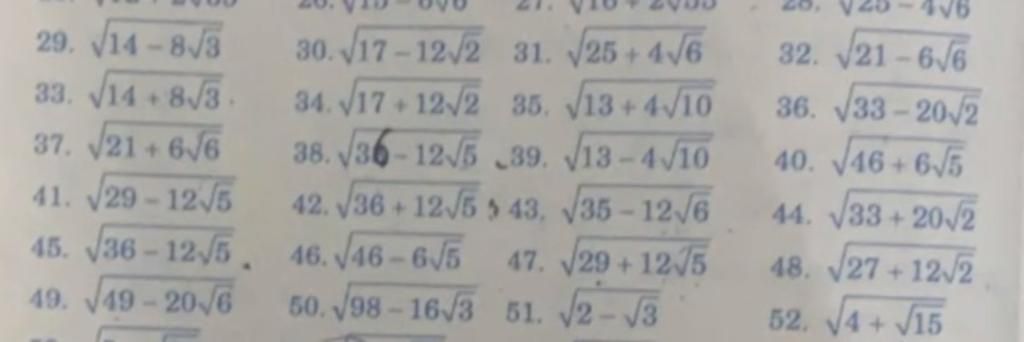 26. √15 - 6√6 27. √16 + 2√55 28. √25 - 4√6
29. √14 - 8√3 30. √17 - 12√2 31. √25 + 4√6 32. √21 - 6√6
33. √14 + 8√3 34. √17 + 12√2 35. √13 + 4√10 36. √33 - 20√2
37. √21 + 6√6 38. √36 - 12√5 39. √13 - 4√10 40. √46 + 6√5
41. √29 - 12√5 42. √36 + 12√5 43. √35 - 12√6 44. √33 + 20√2
45. √36 - 12√5 46. √46 - 6√5 47. √29 + 12√5 48. √27 + 12√2
49. √49 - 20√6 50. √98 - 16√3 51. √2 - √3 52. √4 + √15